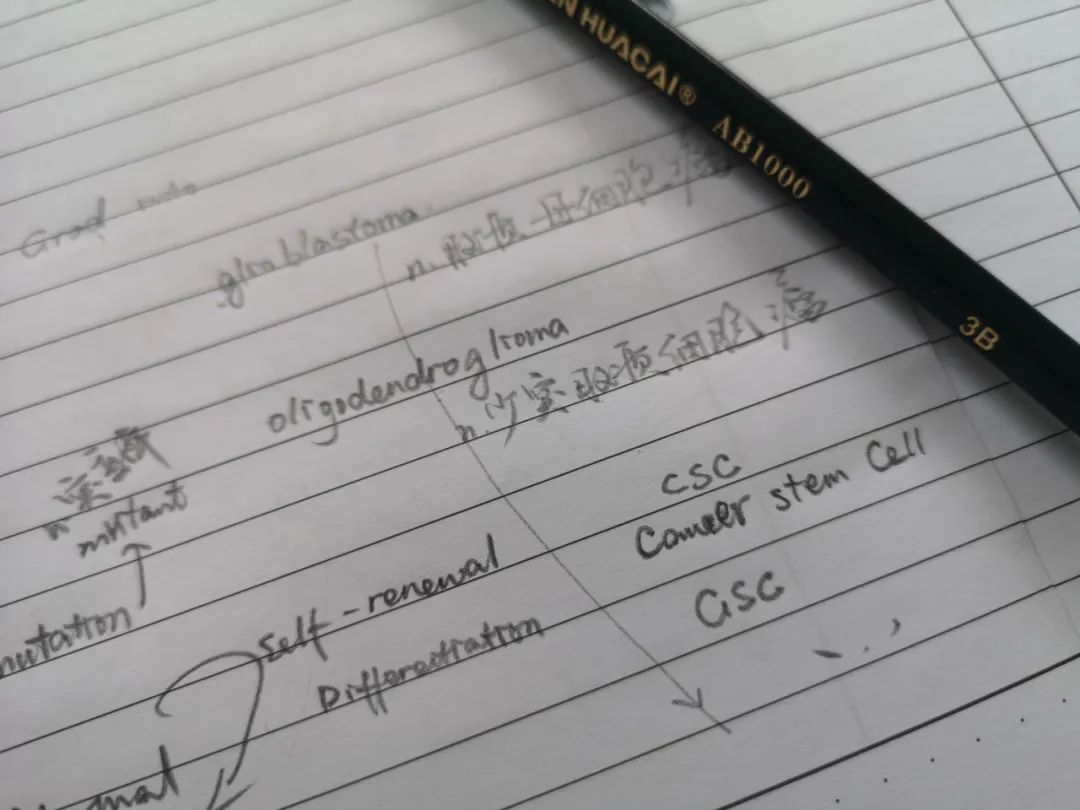 HUACAI® AB1000 3B
Grad
glioblastoma
n. 胶质母细胞瘤
oligodendroglioma
n. 少突胶质细胞瘤
n 突变
mutant
mutation
CSC
Cancer stem Cell
GSC
Self-renewal
Differentiation